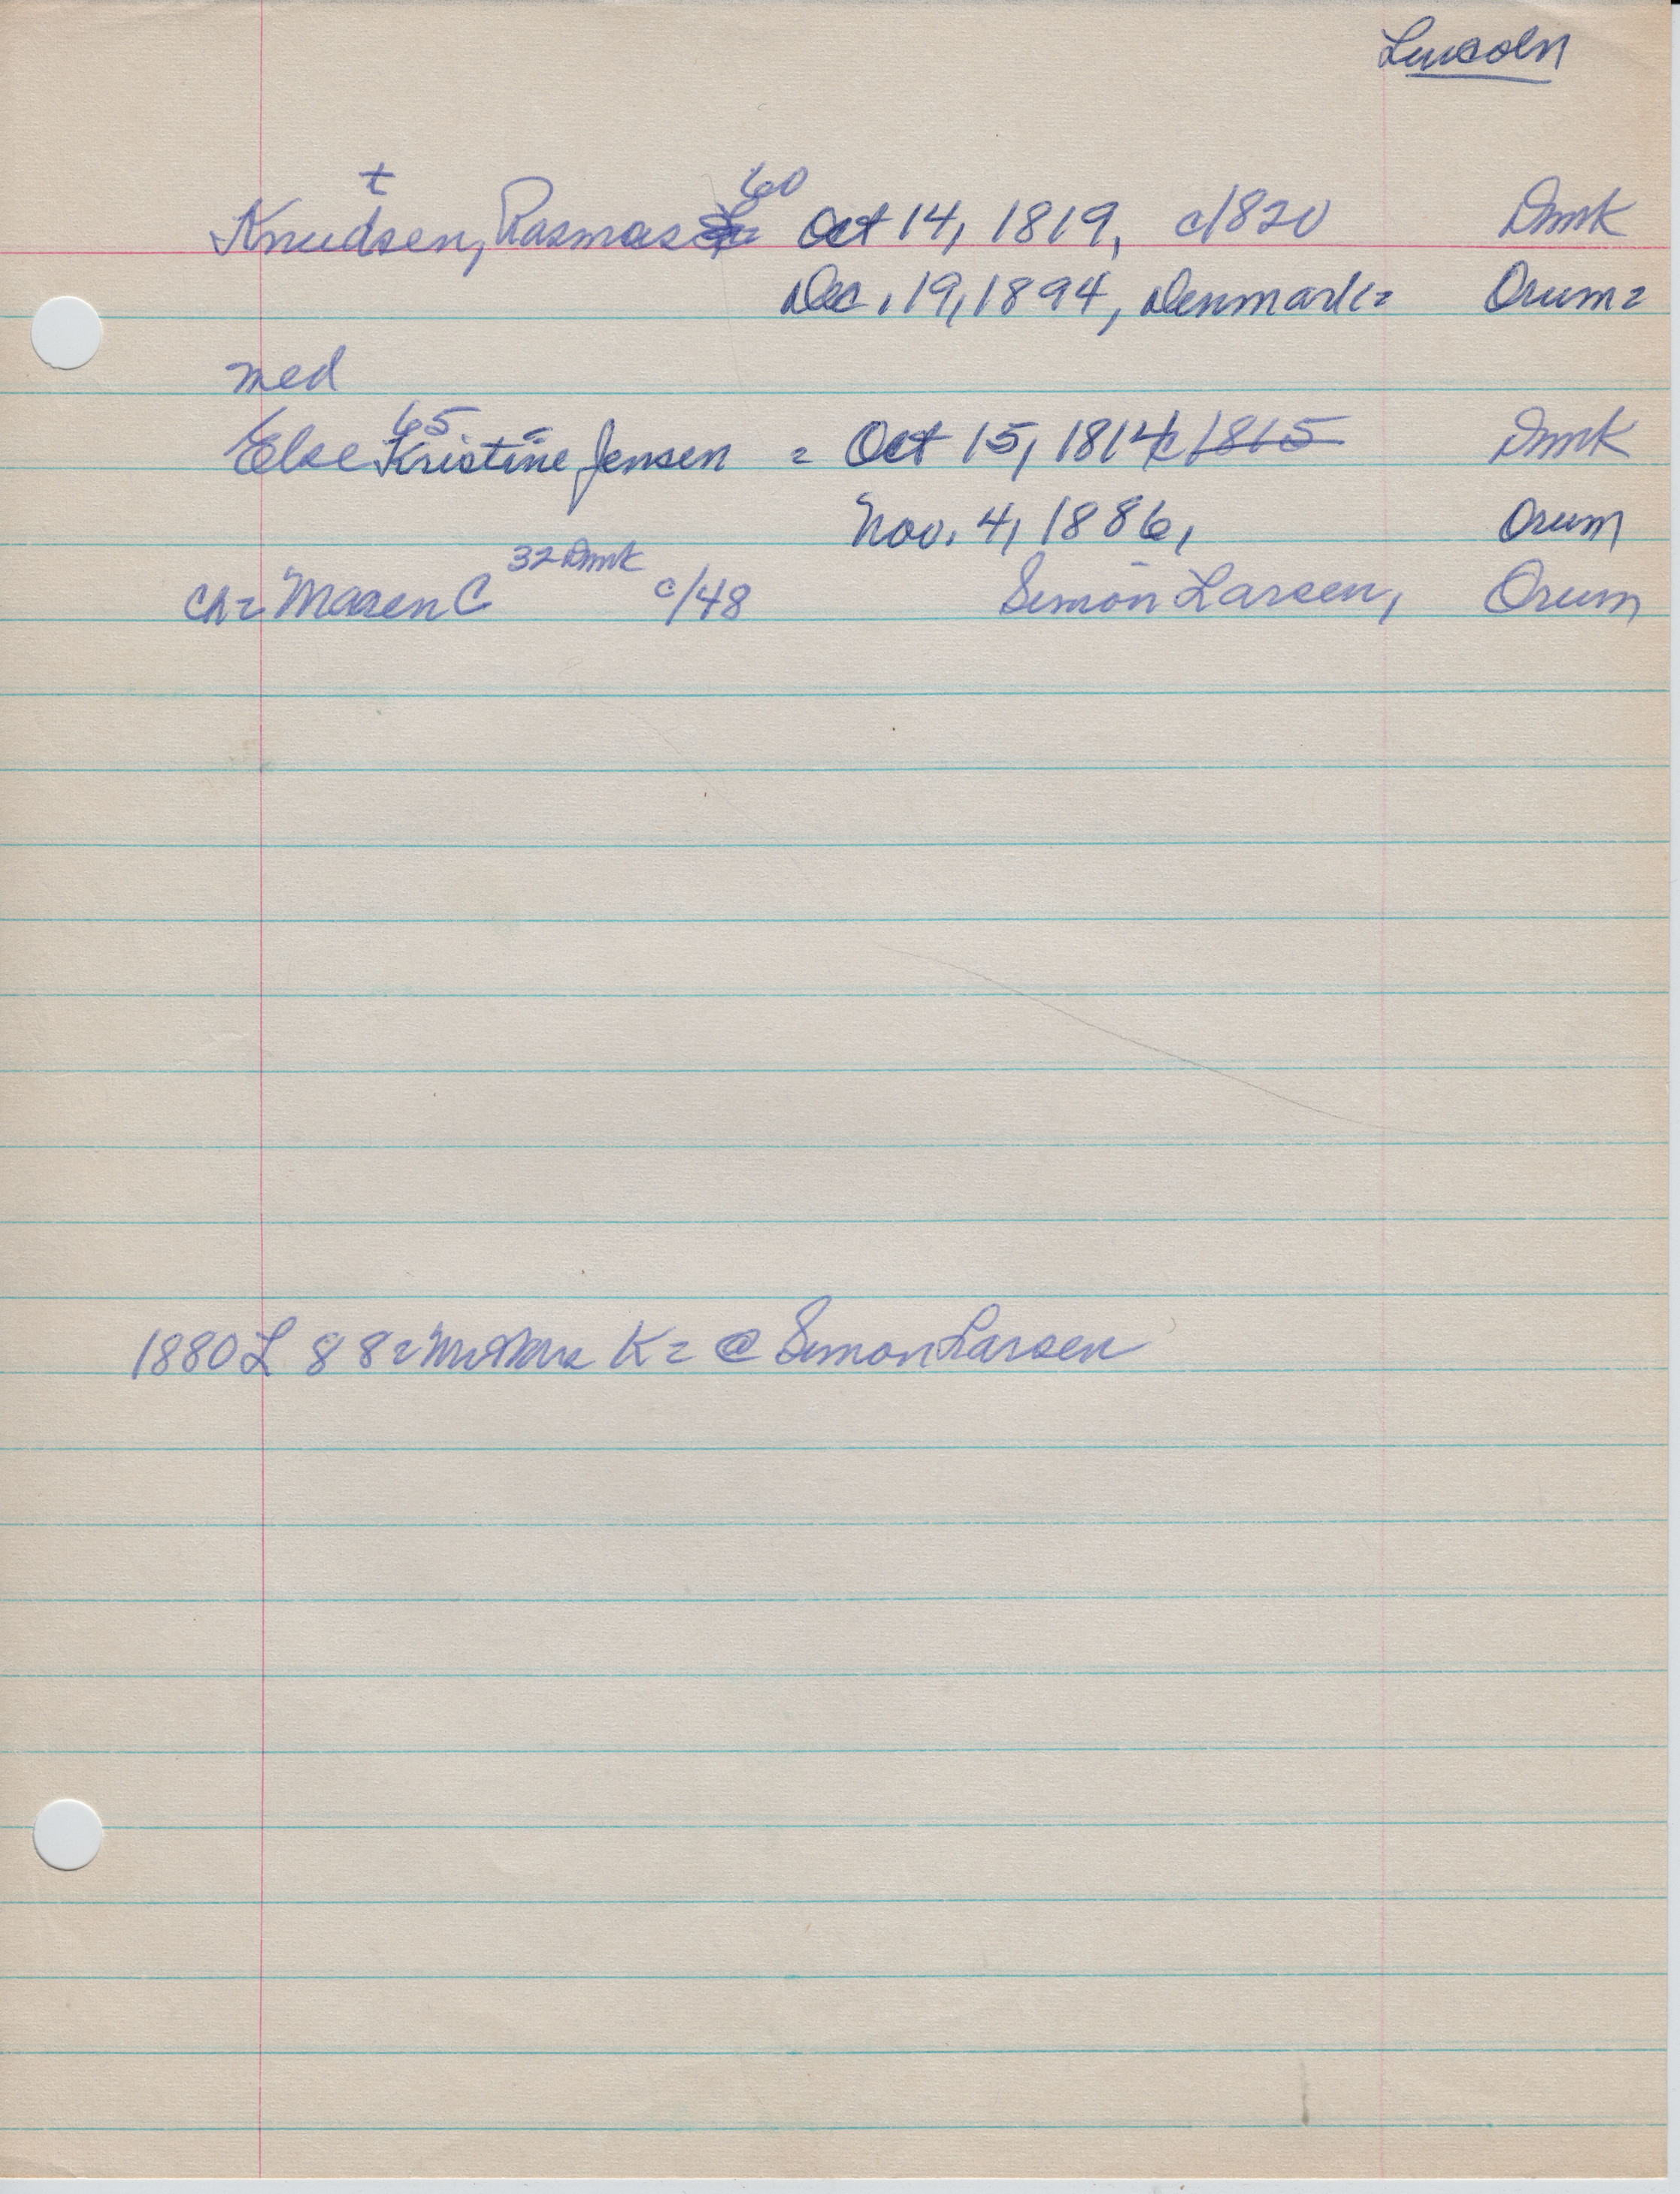 Lincoln
t
Knudsen, Rasmas 60 Oct 14, 1819, c/820 Dmk
Dec, 19, 1894, Denmark= Orum=
med
65
Else Kristine Jensen = Oct 15, 1814 c/1815 Dmk
Nov. 4, 1886, Orum
ch= Maren C 32 Dmk c/48 Simon Larsen, Orum
1880 L 88= Mr & Mrs K= @ Simon Larsen